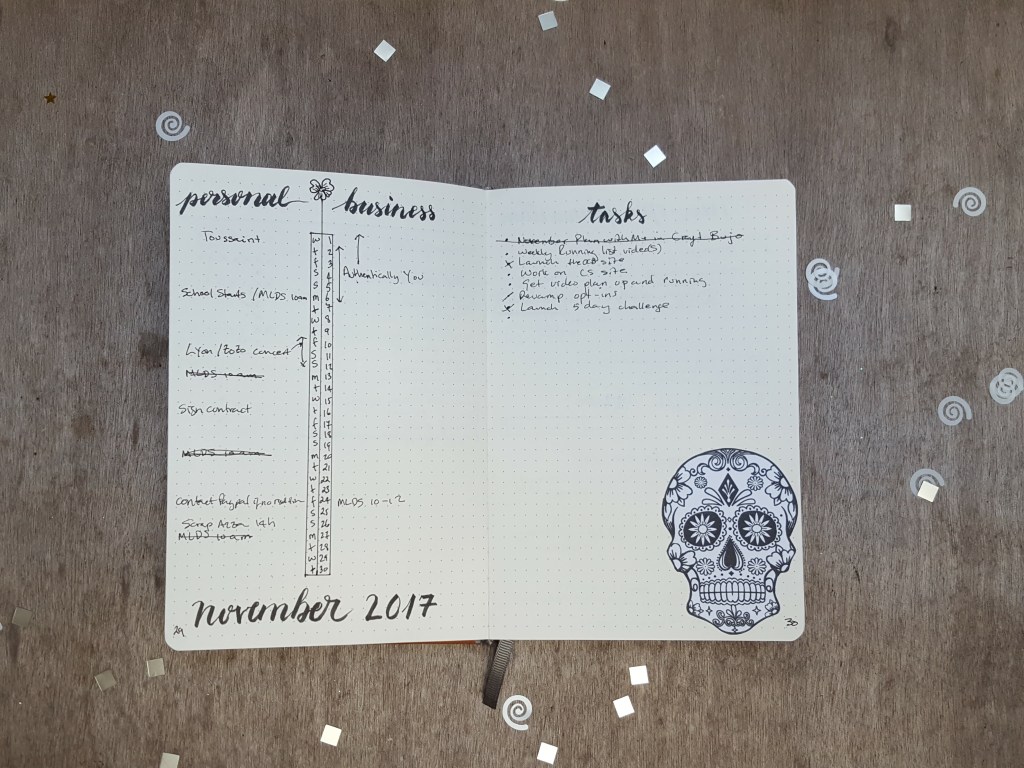 personal business
Toussaint
w 1
t 2
f 3
s 4
s 5
Authentically You
School Starts / MLDS 10am m 6
t 7
w 8
t 9
f 10
Lyon / Zozo concert s 11
s 12
MLDS 10am m 13
t 14
w 15
Sign contract t 16
f 17
s 18
s 19
MLDS 10am m 20
t 21
w 22
t 23
Contact Paypal if no f 24 MLDS 10-12
s 25
Scrap Azza 14h s 26
MLDS 10am m 27
t 28
w 29
t 30
november 2017
29
tasks
• November Plan with Me in Bujo
• Weekly Running list video(s)
× Launch site
• Work on CS site
• Get video plan up and running
/ Revamp opt-ins
× Launch 5 day challenge
•
30